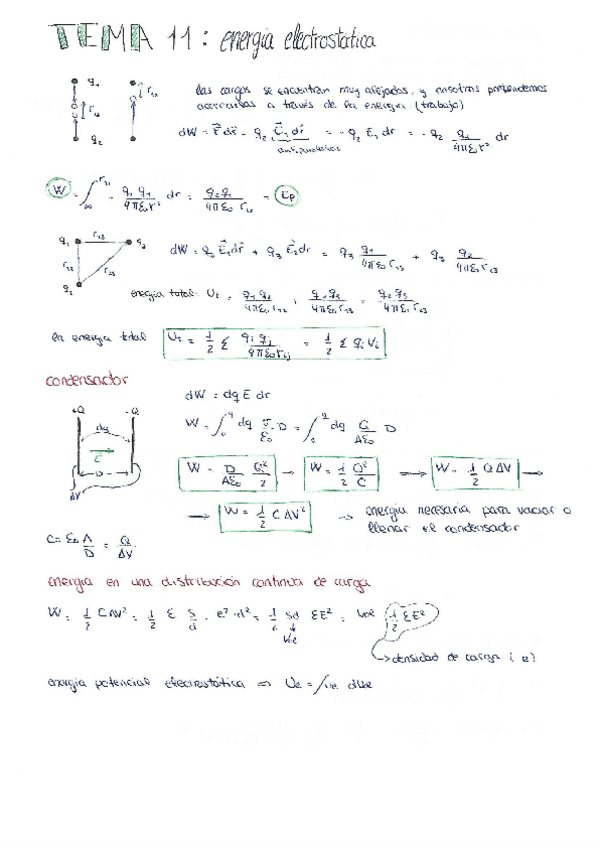 TEMA 11: energía electrostática
q₁ r₁₂ r₁₂
las cargas se encuentran muy alejadas, y nosotros pretendemos
acercarlas a través de la energía (trabajo)
q₂ dW = F⃗ dr⃗ = q₂ E⃗₁ dr⃗ = - q₂ E₁ dr = - q₂ q₁/4πε₀r² dr
antiparalelos
W = ∫_∞^r₁₂ - q₂ q₁/4πε₀r² dr = q₂q₁/4πε₀ r₁₂ = Ep
q₁ r₁₃ q₃ r₁₂ r₂₃ q₂
dW = q₃ E⃗₁dr⃗ + q₃ E⃗₂dr = q₃ q₁/4πε₀r₁₃ + q₃ q₂/4πε₀r₂₃
energía total: U_T = q₁q₂/4πε₀r₁₂ + q₁q₃/4πε₀r₁₃ + q₂q₃/4πε₀r₂₃
la energía total U_T = 1/2 Σ qi qj/4πε₀rij = 1/2 Σ qi Vi
condensador
dW = dq E dr
+Q -Q
dq
E⃗
D
ΔV
W = ∫₀^q dq σ/ε₀ · D = ∫₀^q dq Q/Aε₀ D
W = D/Aε₀ Q²/2 → W = 1/2 Q²/C → W = 1/2 Q ΔV →
→ W = 1/2 C ΔV² → energía necesaria para vaciar o
llenar el condensador
C = ε₀ A/D = Q/ΔV
energía en una distribución continua de carga
W = 1/2 CΔV² = 1/2 ε s/d · e² · d² = 1/2 sd εE² = Vol 1/2 εE²
Vol
→ densidad de carga (e)
energía potencial electrostática ⇒ Ue =